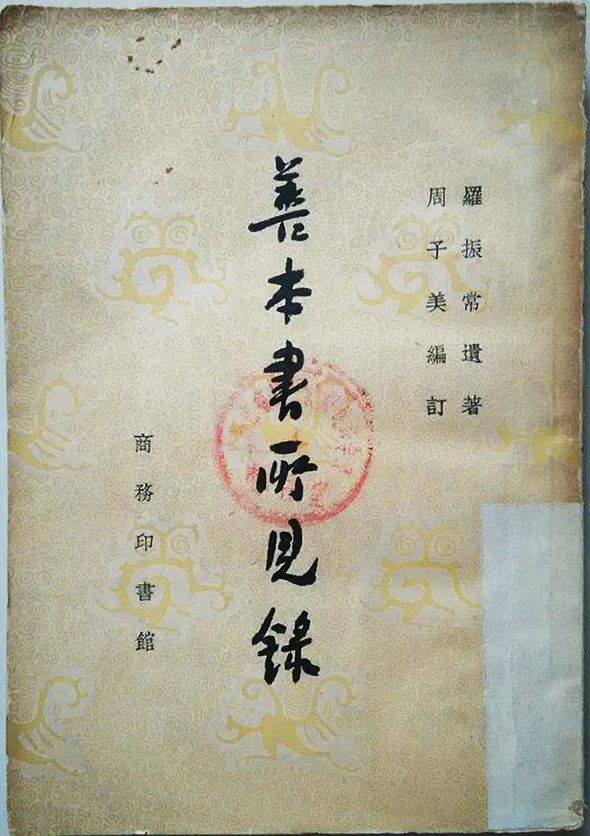 羅振常遺著
周子美編訂
善本書所見錄
商務印書館